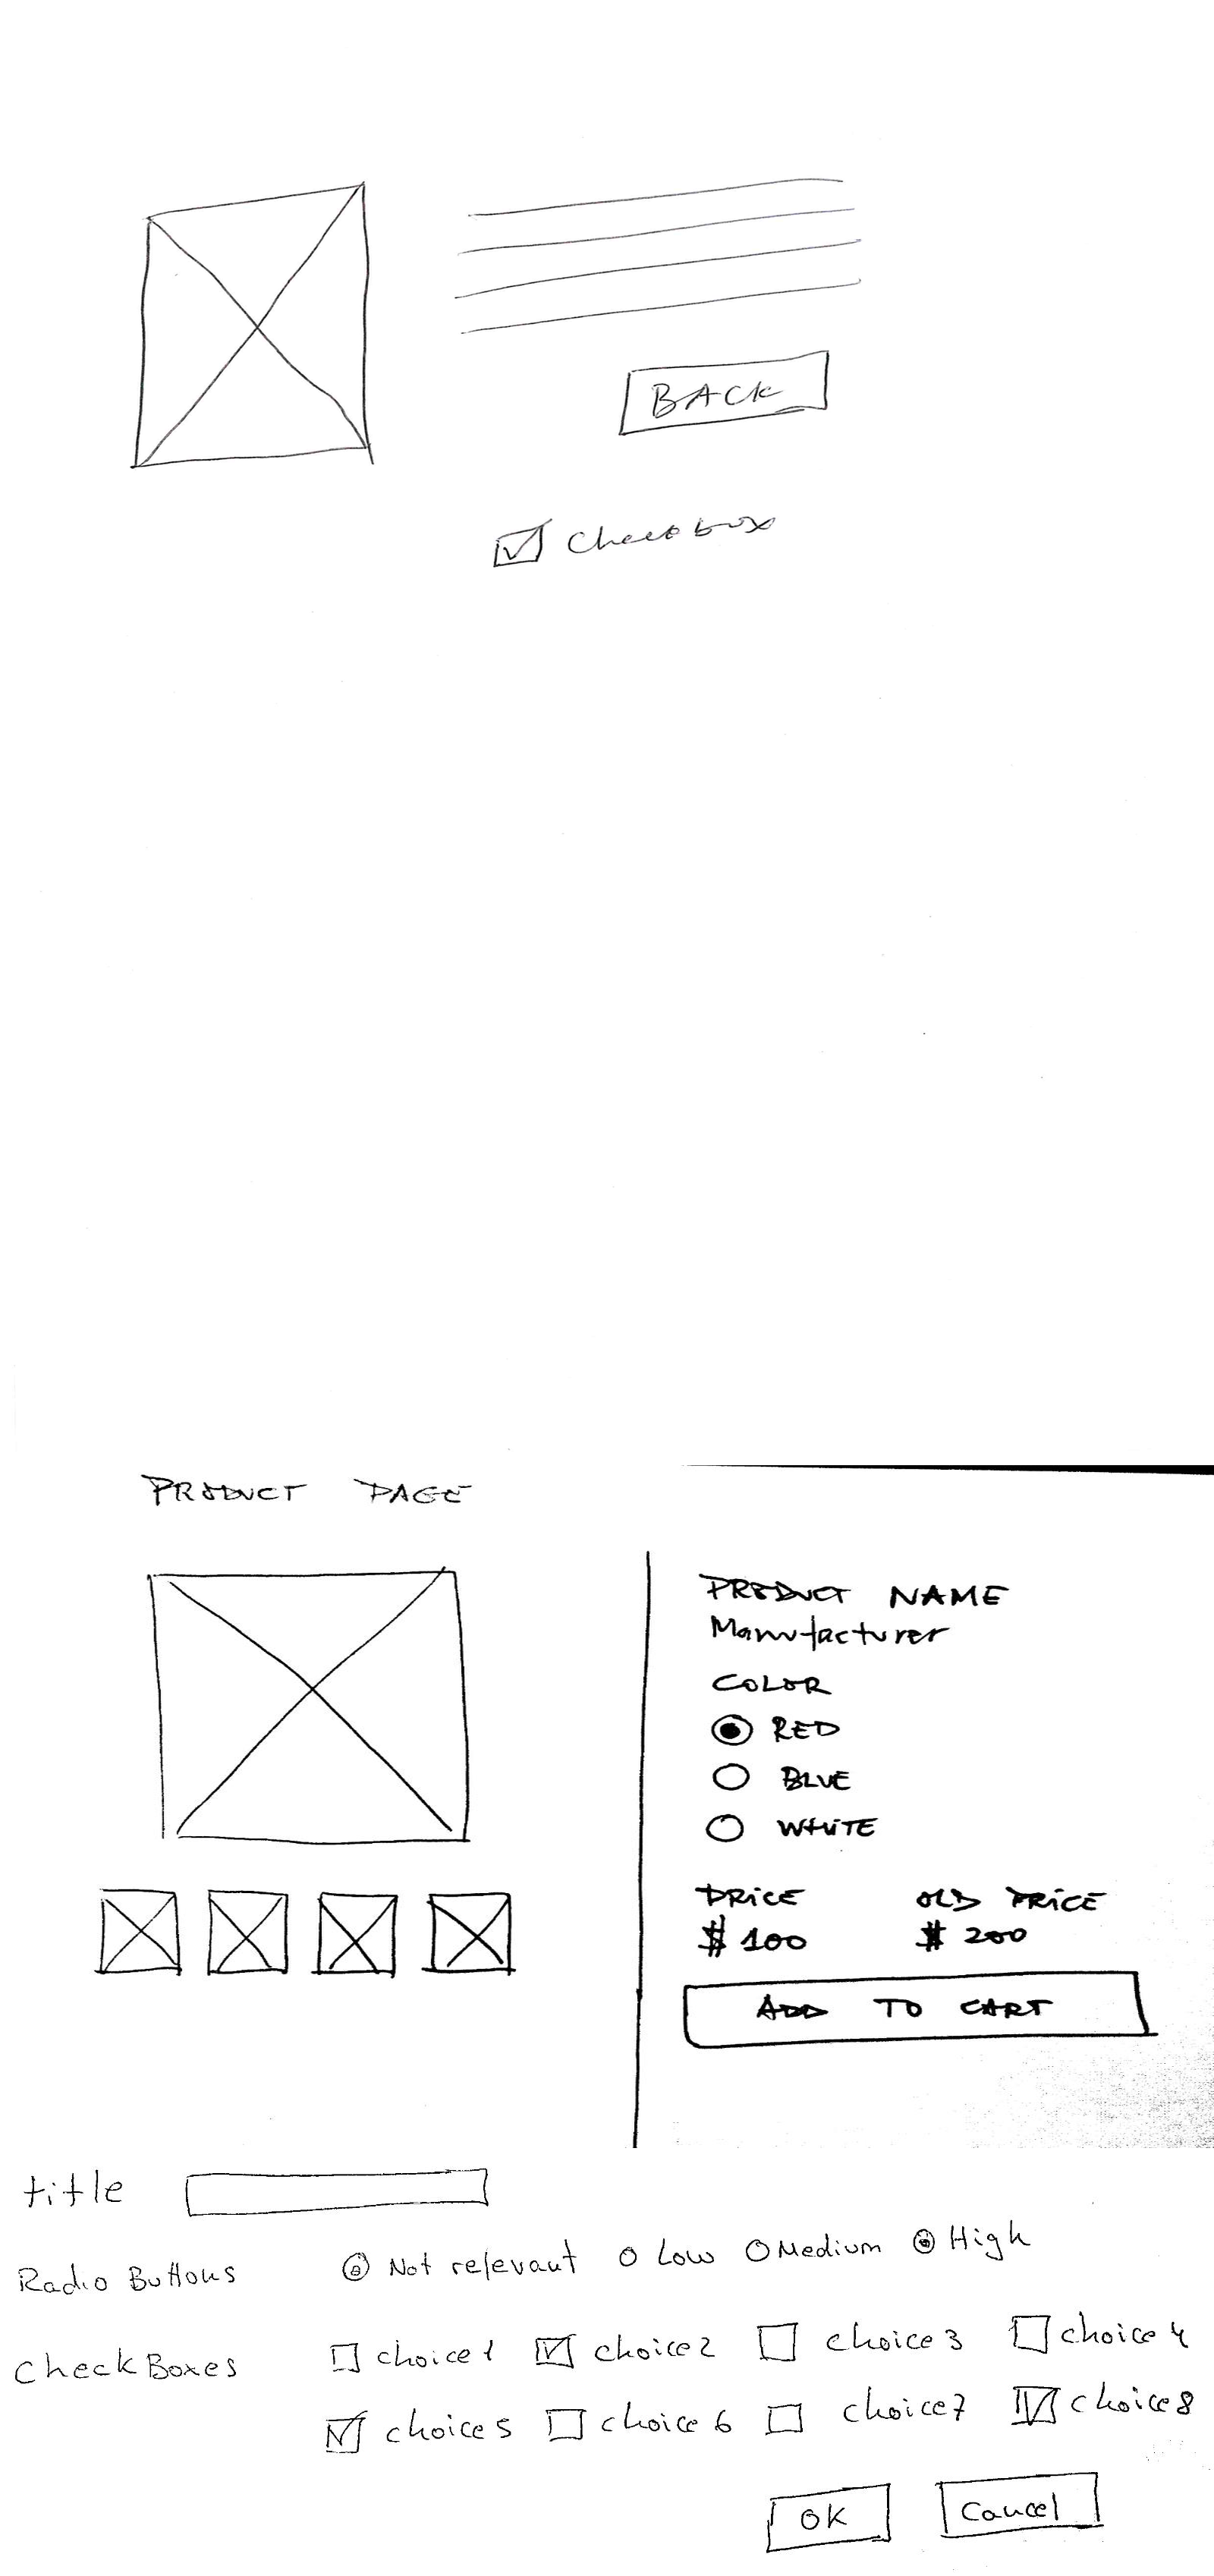 BACK
Checkbox
PRODUCT PAGE
PRODUCT NAME
Manufacturer
COLOR
RED
BLUE
WHITE
PRICE OLD PRICE
$ 100 $ 200
ADD TO CART
title
Radio Buttons Not relevant Low Medium High
CheckBoxes choice 1 choice 2 choice 3 choice 4
choice 5 choice 6 choice 7 choice 8
OK Cancel